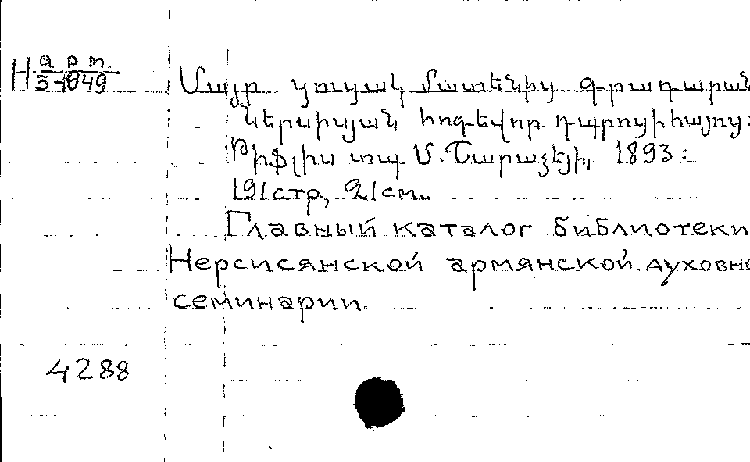 Н арт. 3-1849
Մայր ցուցակ մատենից գրադարան
Ներսիսյան հոգեվոր դպրոցի հայոց:
Թիֆլիս տպ. Մ. Շարաձեյի, 1893:
191 стр, 21 см.
Главный каталог библиотеки
Нерсисянской армянской духовно
семинарии.
4288